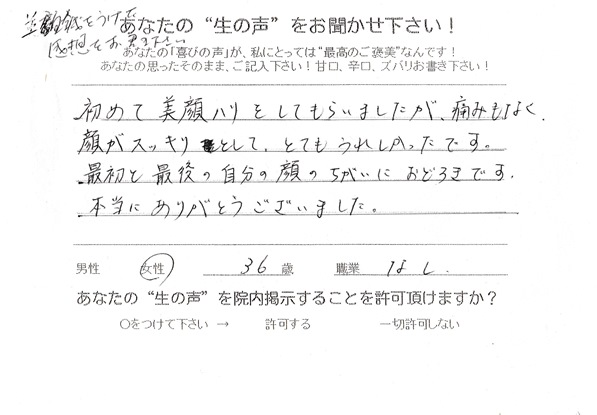 美顔鍼をうけて
感想をお書き下さい
あなたの“生の声”をお聞かせ下さい！
あなたの「喜びの声」が、私にとっては“最高のご褒美”なんです！
あなたの思ったそのまま、ご記入下さい！甘口、辛口、ズバリお書き下さい！
初めて美顔ハリをしてもらいましたが、痛みもなく、
顔がスッキリとして、とてもうれしかったです。
最初と最後の自分の顔のちがいにおどろきです。
本当にありがとうございました。
男性 女性 36歳 職業 なし
あなたの“生の声”を院内掲示することを許可頂けますか？
○をつけて下さい → 許可する 一切許可しない